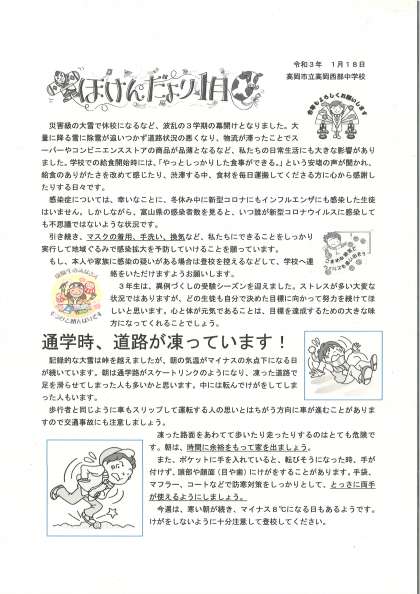 令和3年 1月18日
高岡市立高岡西部中学校
ほけんだより1月
今年もよろしくお願いします
災害級の大雪で休校になるなど、波乱の3学期の幕開けとなりました。大
量に降る雪に除雪が追いつかず道路状況の悪くなり、物流が滞ったことでス
ーパーやコンビニエンスストアの商品が品薄となるなど、私たちの日常生活にも大きな影響があり
ました。学校での給食開始時には、「やっとしっかりした食事ができる。」という安堵の声が聞かれ、
給食のありがたさを改めて感じたり、渋滞する中、食材を毎日運搬してくださる方に心から感謝し
たりする日々です。
感染症については、幸いなことに、冬休み中に新型コロナにもインフルエンザにも感染した生徒
はいません。しかしながら、富山県の感染者数を見ると、いつ誰が新型コロナウイルスに感染して
も不思議ではないような状況です。
引き続き、マスクの着用、手洗い、換気など、私たちにできることをしっかり
実行して地域ぐるみで感染拡大を予防していけることを願っています。
もし、本人や家族に感染の疑いがある場合は登校を控えるなどして、学校へ連
絡をいただけますようお願いします。
3年生は、異例づくしの受験シーズンを迎えました。ストレスが多い大変な
状況ではありますが、どの生徒も自分で決めた目標に向かって努力を続けてほ
しいと思います。心と体が元気であることは、目標を達成するための大きな味
方になってくれることでしょう。
通学時、道路が凍っています！
記録的な大雪は峠を越えましたが、朝の気温がマイナスの氷点下になる日
が続いています。朝は通学路がスケートリンクのようになり、凍った道路で
足を滑らせてしまった人も多いかと思います。中には転んでけがをしてしま
った人もいます。
歩行者と同じように車もスリップして運転する人の思いとはちがう方向に車が進むことがありま
すので交通事故にも注意しましょう。
凍った路面をあわてて歩いたり走ったりするのはとても危険で
す。朝は、時間に余裕をもって家を出ましょう。
また、ポケットに手を入れていると、転びそうになった時、手が
付けず、頭部や顔面（目や歯）にけがをすることがあります。手袋、
マフラー、コートなどで防寒対策をしっかりとして、とっさに両手
が使えるようにしましょう。
今週は、寒い朝が続き、マイナス8℃になる日もあるようです。
けがをしないように十分注意して登校してください。